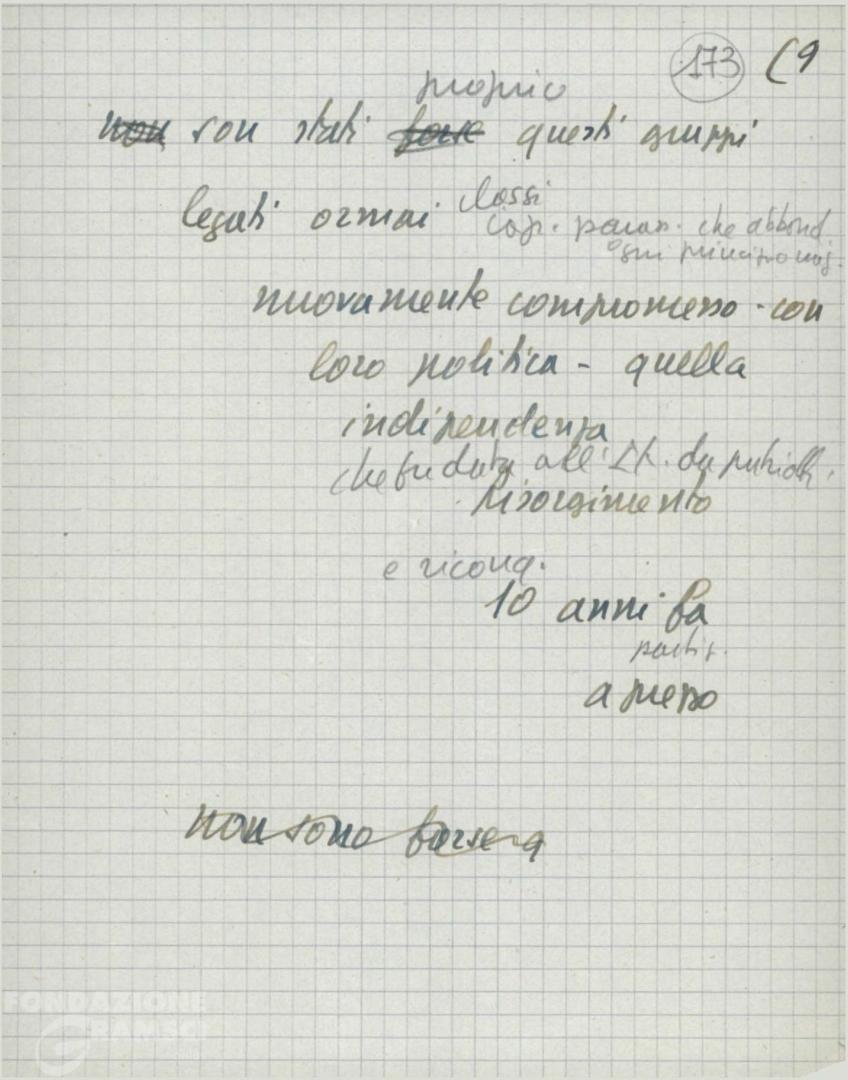 173 (9
proprio
non son stati forse questi gruppi
legati ormai classi
cap. paras. che abband
ogni principio naz.
nuovamente compromesso - con
loro politica - quella
indipendenza
che fu data all'It. da patriotti
Risorgimento
e riconq.
10 anni fa
partig.
a prezzo
non sono forse
FONDAZIONE
GRAMSCI